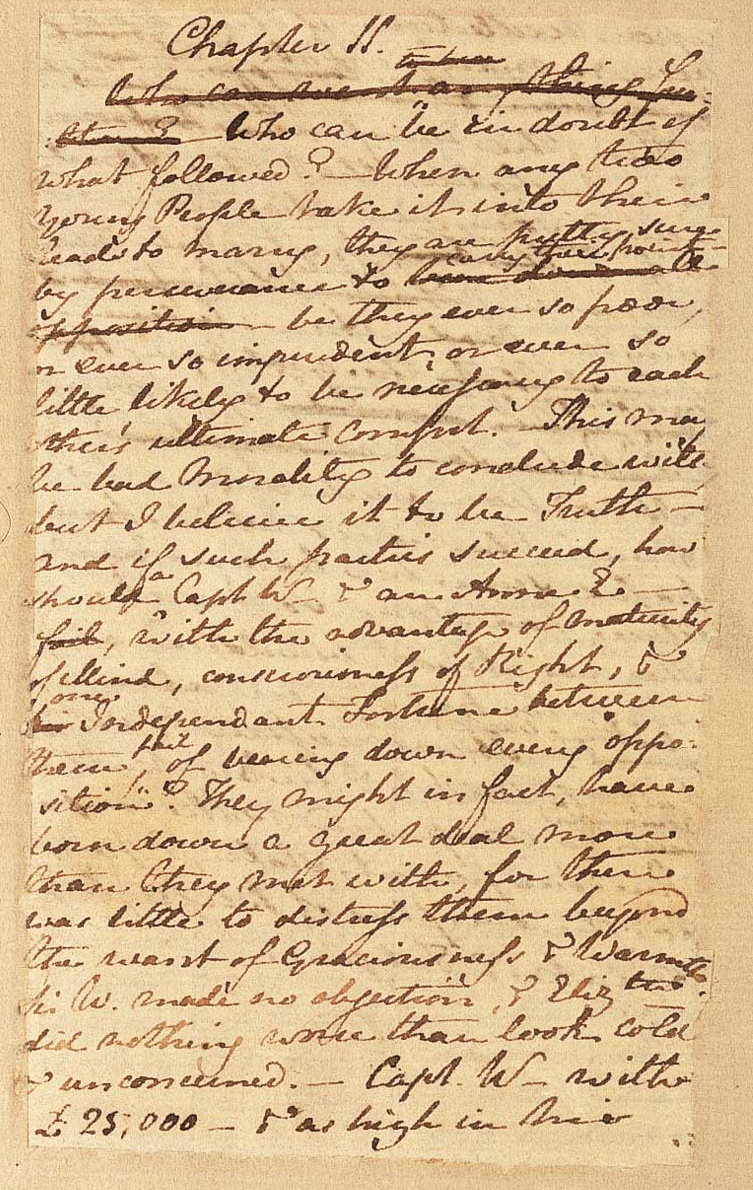 Chapter 11.
to know
Who can want any thing fur=
=ther? Who can be in doubt of
what followed? — When any two
Young People take it into their
heads to marry, they are pretty sure
carry their point—
by perseverance to bear down all
opposition — be they ever so poor,
or ever so imprudent, or ever so
little likely to be necessary to each
other's ultimate comfort. This may
be bad Morality to conclude with,
but I beleive it to be Truth —
and if such parties succeed, how
should a Capt W— & an Anne E—
fail, with the advantage of maturity
of Mind, consciousness of Right, &
one
Independant Fortune between
them, fail of bearing down every oppo=
sition? They might in fact, have
born down a great deal more
than they met with, for there
was little to distress them beyond
the want of Graciousness & Warmth.
Sir W. made no objection, & Elizth
did nothing worse than look cold
& unconcerned. — Capt. W— with
£25,000 — & as high in his